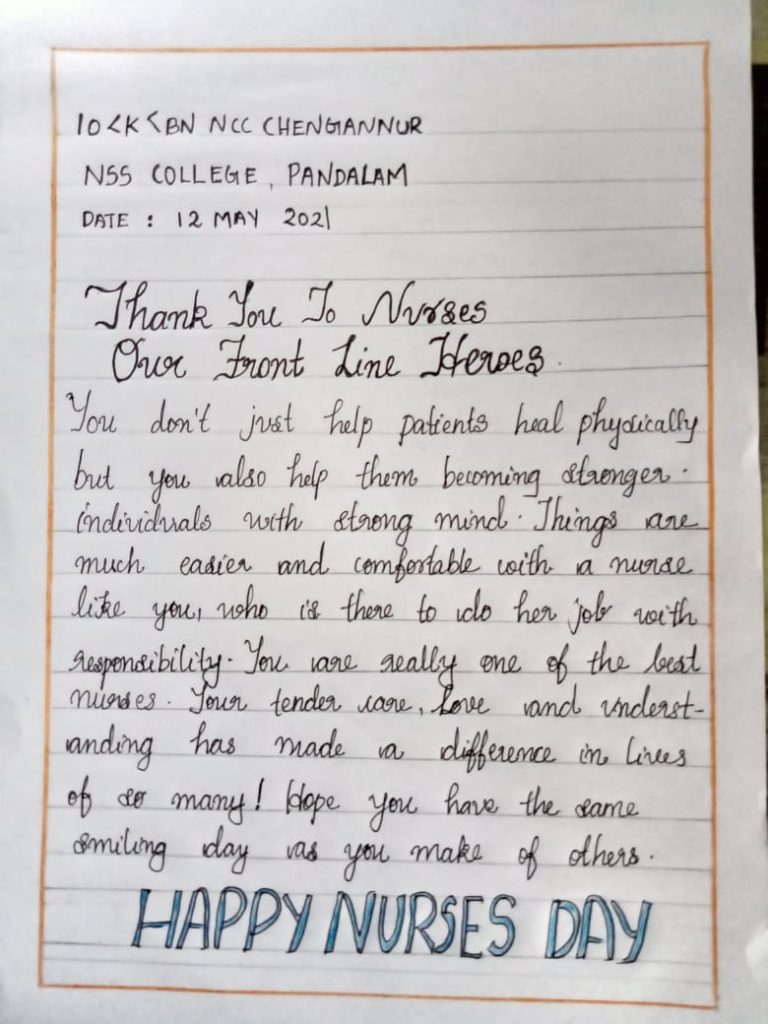 10<K<BN NCC CHENGANNUR
NSS COLLEGE, PANDALAM
DATE : 12 MAY 2021
Thank You To Nurses
Our Front Line Heroes.
You don't just help patients heal physically
but you also help them becoming stronger.
individuals with strong mind. Things are
much easier and comfortable with a nurse
like you, who is there to do her job with
responsibility. You are really one of the best
nurses. Your tender care, Love and underst-
anding has made a difference in lives
of so many! Hope you have the same
smiling day as you make of others.
HAPPY NURSES DAY